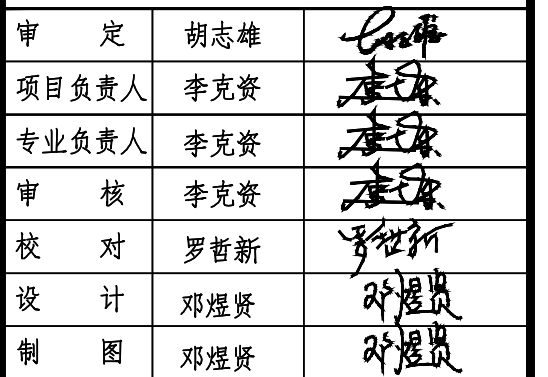 审 定 胡志雄
项目负责人 李克资
专业负责人 李克资
审 核 李克资
校 对 罗哲新 罗哲新
设 计 邓煜贤 邓煜贤
制 图 邓煜贤 邓煜贤